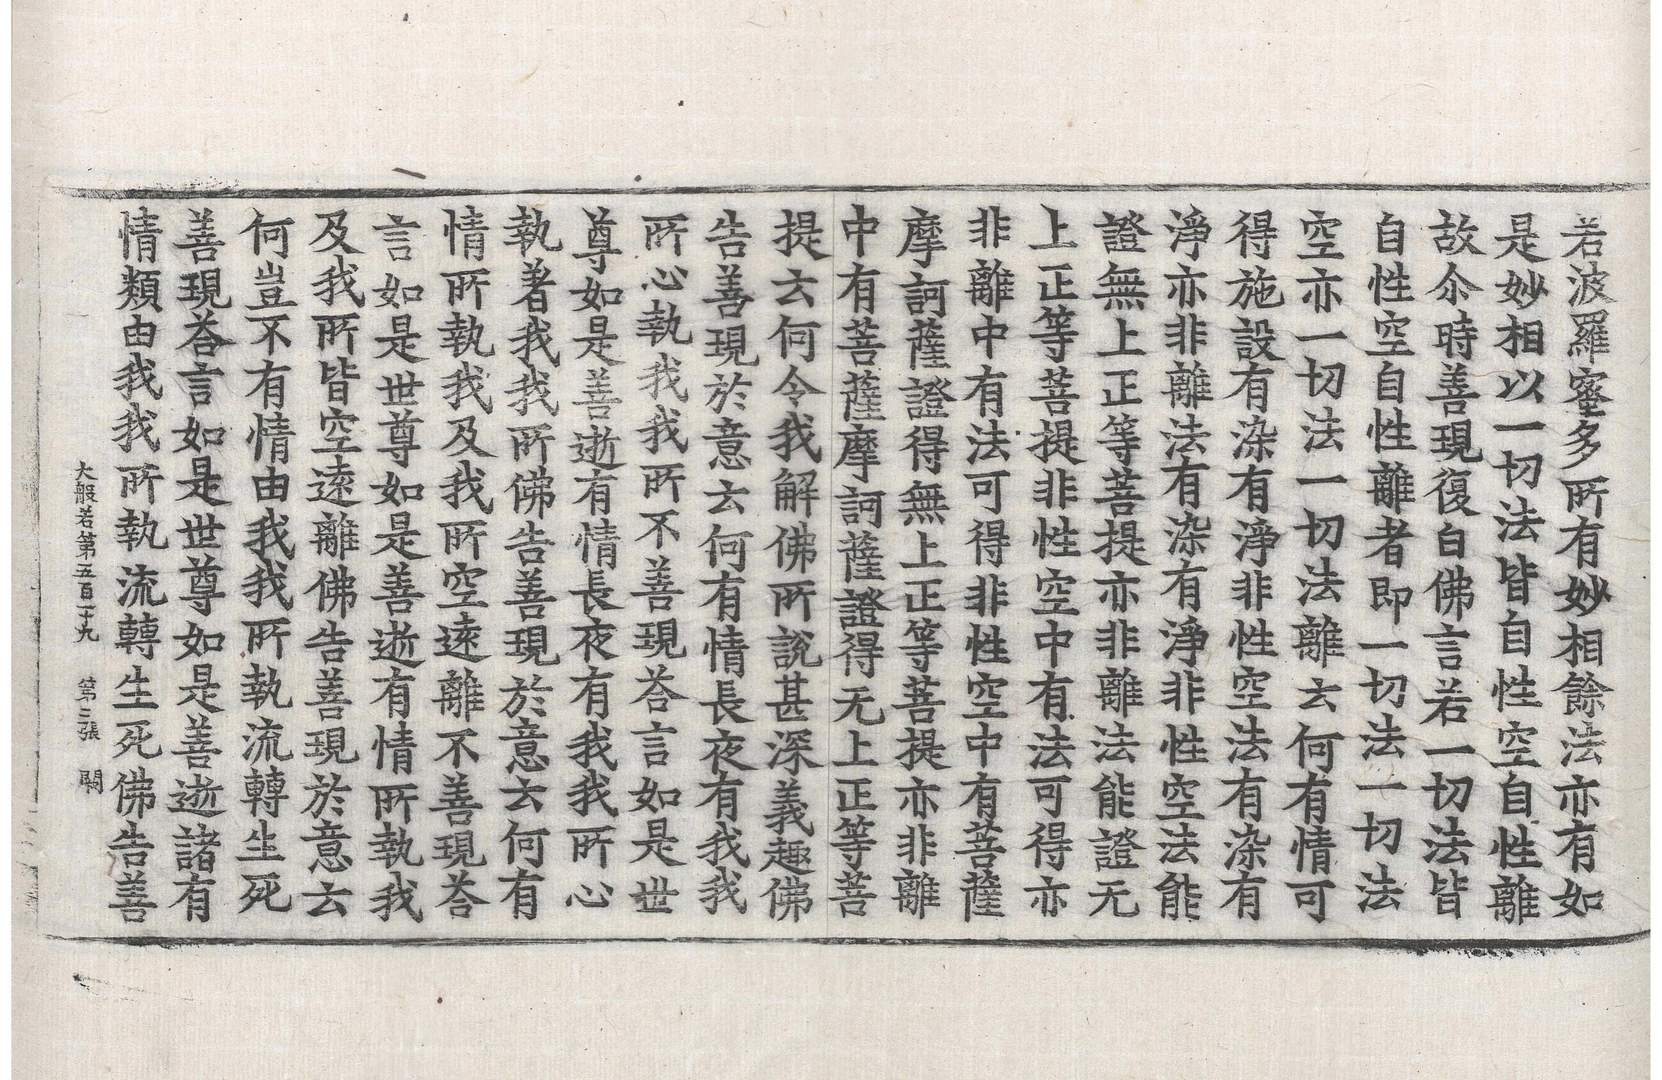 若波羅蜜多所有妙相餘法亦有如
是妙相以一切法皆自性空自性離
故尒時善現復白佛言若一切法皆
自性空自性離者即一切法一切法
空亦一切法一切法離云何有情可
得施設有染有淨非性空法有染有
淨亦非離法有染有淨非性空法能
證無上正等菩提亦非離法能證无
上正等菩提非性空中有法可得亦
非離中有法可得非性空中有菩薩
摩訶薩證得無上正等菩提亦非離
中有菩薩摩訶薩證得无上正等菩
提云何令我解佛所說甚深義趣佛
告善現於意云何有情長夜有我我
所心執我我所不善現荅言如是世
尊如是善逝有情長夜有我我所心
執著我我所佛告善現於意云何有
情所執我及我所空遠離不善現荅
言如是世尊如是善逝有情所執我
及我所皆空遠離佛告善現於意云
何豈不有情由我我所執流轉生死
善現荅言如是世尊如是善逝諸有
情類由我我所執流轉生死佛告善
大般若第五百二十九 第三張 闕